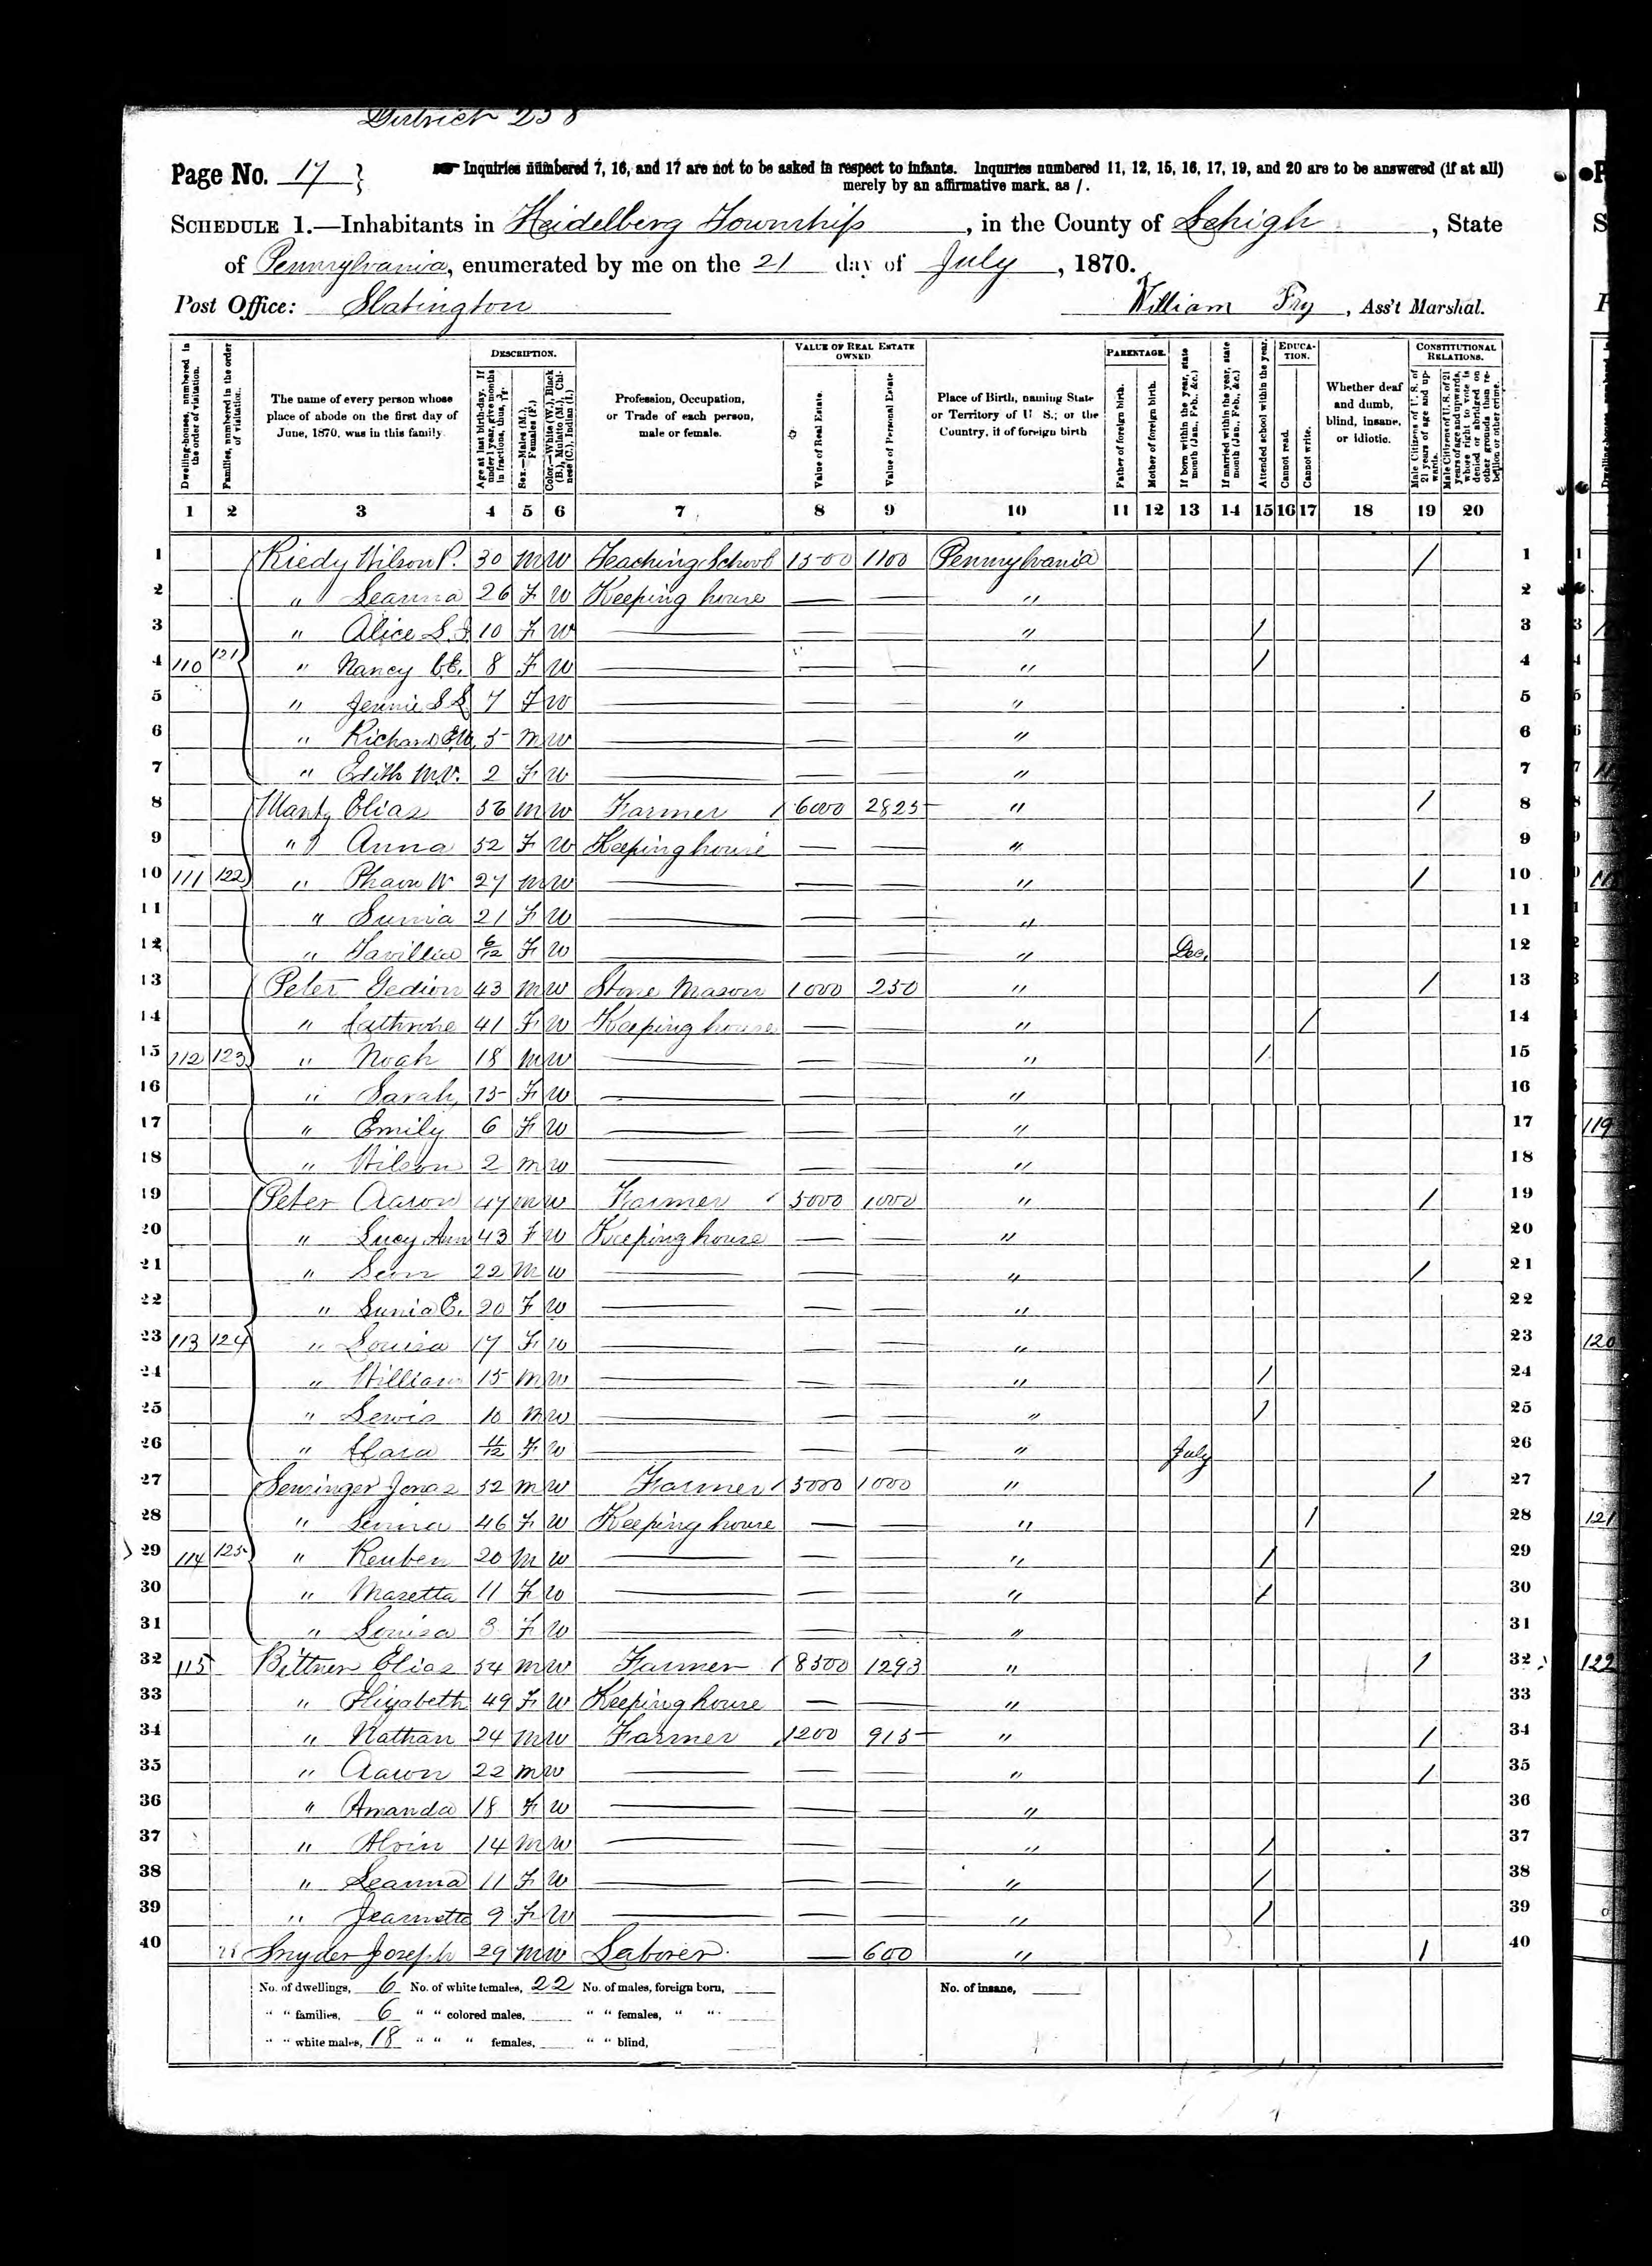 District 258
Page No. 17
Inquiries numbered 7, 16, and 17 are not to be asked in respect to infants. Inquiries numbered 11, 12, 15, 16, 17, 19, and 20 are to be answered (if at all)
merely by an affirmative mark, as /.
SCHEDULE 1.—Inhabitants in Heidelberg Township, in the County of Lehigh, State
of Pennsylvania, enumerated by me on the 21 day of July, 1870.
Post Office: Slatington William Fry, Ass't Marshal.
Dwelling-houses, numbered in the order of visitation.
Families, numbered in the order of visitation.
The name of every person whose place of abode on the first day of June, 1870, was in this family.
DESCRIPTION.
Age at last birth-day. If under 1 year, give months in fractions, thus, 3/12.
Sex.—Males (M.), Females (F.)
Color.—White (W.), Black (B.), Mulatto (M.), Chinese (C.), Indian (I.)
Profession, Occupation, or Trade of each person, male or female.
VALUE OF REAL ESTATE OWNED.
Value of Real Estate.
Value of Personal Estate.
Place of Birth, naming State or Territory of U. S.; or the Country, if of foreign birth
PARENTAGE.
Father of foreign birth.
Mother of foreign birth.
If born within the year, state month (Jan., Feb., &c.)
If married within the year, state month (Jan., Feb., &c.)
Attended school within the year.
EDUCATION.
Cannot read.
Cannot write.
Whether deaf and dumb, blind, insane, or idiotic.
CONSTITUTIONAL RELATIONS.
Male Citizens of U. S. of 21 years of age and upwards.
Male Citizens of U. S. of 21 years of age and upwards, whose right to vote is denied or abridged on other grounds than rebellion or other crime.
1 2 3 4 5 6 7 8 9 10 11 12 13 14 15 16 17 18 19 20
1 Riedy Wilson P. 30 M W Teaching School 1500 1100 Pennsylvania / 1
2 " Leanna 26 F W Keeping house — — " 2
3 " Alice 10 F W — — — " / 3
4 110 121 " Nancy 8 F W — — — " / 4
5 " Jennie 7 F W — — — " 5
6 " Richard 5 M W — — — " 6
7 " Edith M.V. 2 F W — — — " 7
8 Elias 56 M W Farmer 6000 2825 " / 8
9 " Anna 52 F W Keeping house — — " 9
10 111 122 " 27 M W — — — " / 10
11 " 21 F W — — — " 11
12 " Savillia 6/12 F W — — — " Dec. 12
13 Peter Gedion 43 M W Stone Mason 1000 250 " / 13
14 " Cathrine 41 F W Keeping house — — " / 14
15 112 123 " Noah 18 M W — — — " / 15
16 " Sarah 15 F W — — — " 16
17 " Emily 6 F W — — — " 17
18 " Wilson 2 M W — — — " 18
19 Peter Aaron 47 M W Farmer 5000 1000 " / 19
20 " Lucy Ann 43 F W Keeping house — — " 20
21 " 22 M W — — — " / 21
22 " 20 F W — — — " 22
23 113 124 " Louisa 17 F W — — — " 23
24 " William 15 M W — — — " / 24
25 " Lewis 10 M W — — — " / 25
26 " Clara 11/12 F W — — — " July 26
27 Jonas 52 M W Farmer 5000 1000 " / 27
28 " 46 F W Keeping house — — " / 28
29 114 125 " Reuben 20 M W — — — " / 29
30 " Masetta 11 F W — — — " / 30
31 " Louisa 3 F W — — — " 31
32 115 Bittner Elias 54 M W Farmer 8500 1293 " / 32
33 " Elizabeth 49 F W Keeping house — — " 33
34 " Nathan 24 M W Farmer 1200 915 " / 34
35 " Aaron 22 M W — — — " / 35
36 " Amanda 18 F W — — — " 36
37 " Alvin 14 M W — — — " / 37
38 " Leanna 11 F W — — — " / 38
39 " Jeannetta 9 F W — — — " / 39
40 Snyder Joseph 29 M W Laborer — 600 " / 40
No. of dwellings, 6 No. of white females, 22 No. of males, foreign born, No. of insane,
" " families, 6 " " colored males, " " females, " "
" " white males, 18 " " " females, " " blind,
119
120
121
122